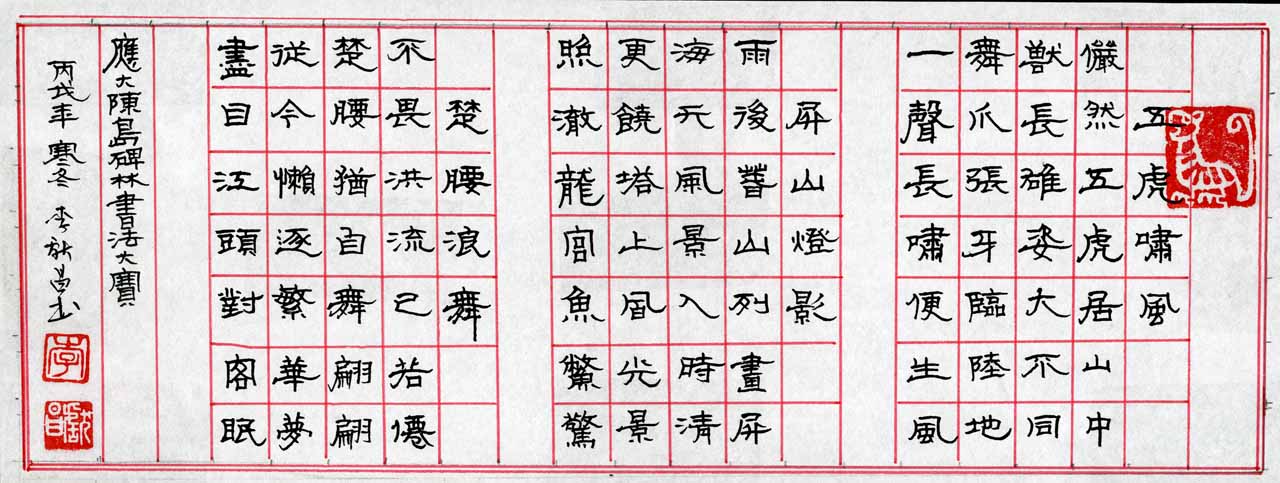 五虎嘯風
儼然五虎居山中
獸長雄姿大不同
舞爪張牙臨陸地
一聲長嘯便生風
屏山燈影
雨後山列畫屏
海天風景入時清
更饒塔上風光景
照澈龍宮魚鱉驚
楚腰浪舞
不畏洪流已若僊
楚腰猶自舞翩翩
從今懶逐繁華夢
盡目江頭對客眠
應大陳島碑林書法大賽
丙戌年 寒冬 李新昌書
李